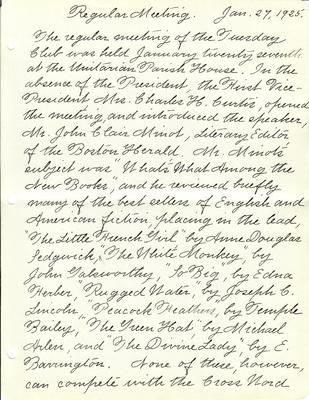 Regular Meeting. Jan. 27, 1925.
The regular meeting of the Tuesday
Club was held January twenty seventh
at the Unitarian Parish House. In the
absence of the President, the First Vice-
President Mrs. Charles H. Curtis, opened
the meeting, and introduced the speaker,
Mr. John Clair Minot, Literary Editor
of the Boston Herald. Mr. Minot's
subject was "What's What Among the
New Books", and he reviewed briefly
many of the best sellers of English and
American fiction, placing in the lead,
"The Little French Girl" by Anne Douglas
Sedgwick, "The White Monkey", by
John Galsworthy, "So Big", by Edna
Ferber, "Rugged Water", by Joseph C.
Lincoln, "Peacock Feathers", by Temple
Bailey, "The Green Hat", by Michael
Arlen, and "The Divine Lady", by E.
Barrington. None of these, however,
can compete with the Cross Word